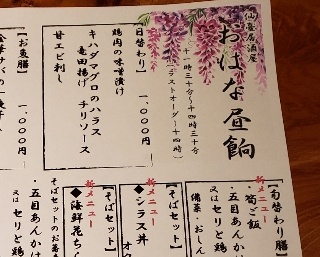 仙臺居酒屋
おはな昼餉
(十一時三十分〜十四時三十分
ラストオーダー十四時)
【日替わり膳】 一、〇〇〇円
鶏肉の味噌漬け
キハダマグロのハラス
竜田揚げ チリソース
甘エビ刺し
【お魚膳】 一、〇〇〇円
【旬替わり膳】
新メニュー
・筍ご飯
・五目あんかけ
又はセリと鶏
備菜・おしん
【そばセット】
新メニュー
◆シラス丼
【そばセット】
新メニュー
◆海鮮花ちら
そばセットのお
・五目あんかけ
又はセリと鶏